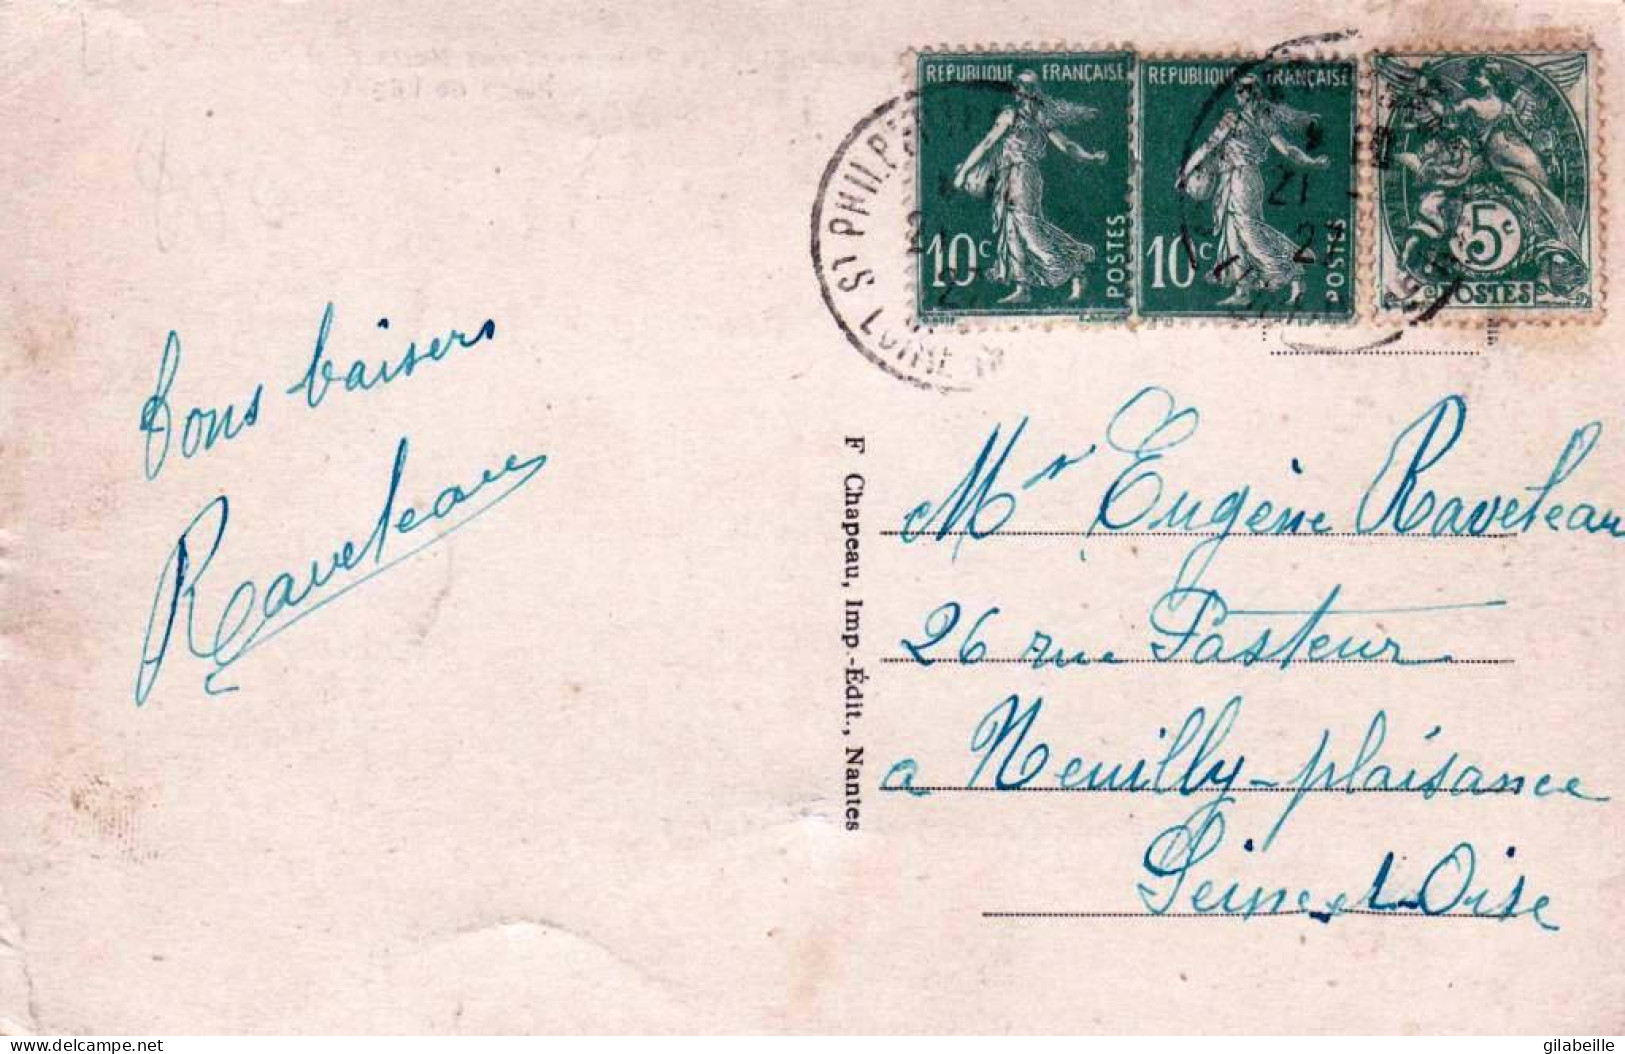 REPUBLIQUE FRANÇAISE
10c
POSTES
REPUBLIQUE FRANÇAISE
10c
POSTES
5c
POSTES
ST PHILB
LOIRE
21
Bons baisers
Raveteau
F Chapeau, Imp.-Édit., Nantes
Mr Eugène Raveteau
26 rue Pasteur
a Neuilly-plaisance
Seine et Oise
delcampe.net
gilabeille